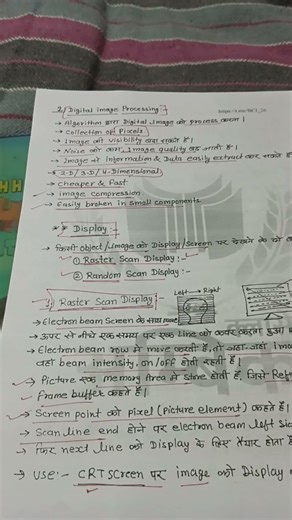 2) Digital image Processing :-
→ Algorithm द्वारा Digital image को process करना।
→ Collection of Pixels
→ Image की visibility बढ़ा सकते हैं।
→ Noise को कम, image quality बढ़ जाती है।
→ Image से Information & Data easily extract कर सकते हैं
→ 2-D/3-D/4-Dimensional
→ Cheaper & fast
→ image compression
→ Easily broken in small components
** Display :-
→ किसी object/image को Display/screen पर देखने के दो
① Raster Scan Display :-
② Random Scan Display :-
Left → Right
1) Raster Scan Display :-
→ Electron beam Screen के साथ move
→ ऊपर से नीचे एक समय पर एक line को कवर करता हुआ
→ Electron beam row में move करती है, तो जहां-जहां
वहां beam intensity on/off होती रहती है।
→ Picture एक memory Area में store होती है, जिसे
Frame buffer कहते हैं।
→ Screen point को pixel (Picture element) कहते हैं।
→ Scan line end होने पर electron beam left
→ फिर next line को Display के लिए तैयार होता
→ use:- CRT screen पर image को Display